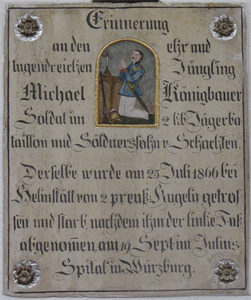 Erinnerung
an den ehr und
tugendreichen Jüngling
Michael Königbauer
Soldat im 2 k.b. Jägerba
taillon und Söldnerssohn v. Schachten.
Derselbe wurde am 25 Juli 1866 bei
Helmstätt von 2 preuß. Kugeln getrof
fen und starb, nachdem ihm der linke Fuß
abgenommen, am 19 Sept im Julius
Spital in Würzburg.